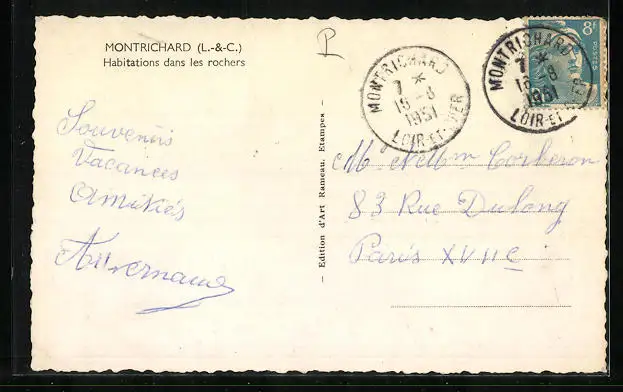 MONTRICHARD (L.-&-C.)
Habitations dans les rochers
Souvenirs
Vacances
Amitiés
Auvernaud
— Edition d'Art Rameau, Etampes —
P
MONTRICHARD
7 *
18 - 8
1951
LOIR-ET-CHER
MONTRICHARD
7 *
18 - 8
1951
LOIR-ET-CHER
8F
POSTES
M et Mme Corberon
83 Rue Dulong
Paris XVIIe